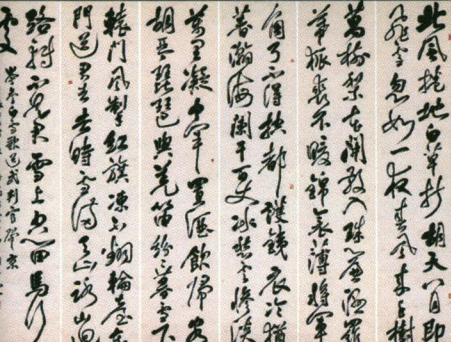 北風捲地白草折胡天八月即
飛雪忽如一夜春風來千樹
萬樹梨花開散入珠簾濕羅
幕狐裘不暖錦衾薄將軍
角弓不得控都護鐵衣冷猶
著瀚海闌干百丈冰愁雲慘淡
萬里凝中軍置酒飲歸客
胡琴琵琶與羌笛紛紛暮雪下
轅門風掣紅旗凍不翻輪臺東
門送君去去時雪滿天山路山迴
路轉不見君雪上空留馬行
處
岑參白雪歌送武判官歸京